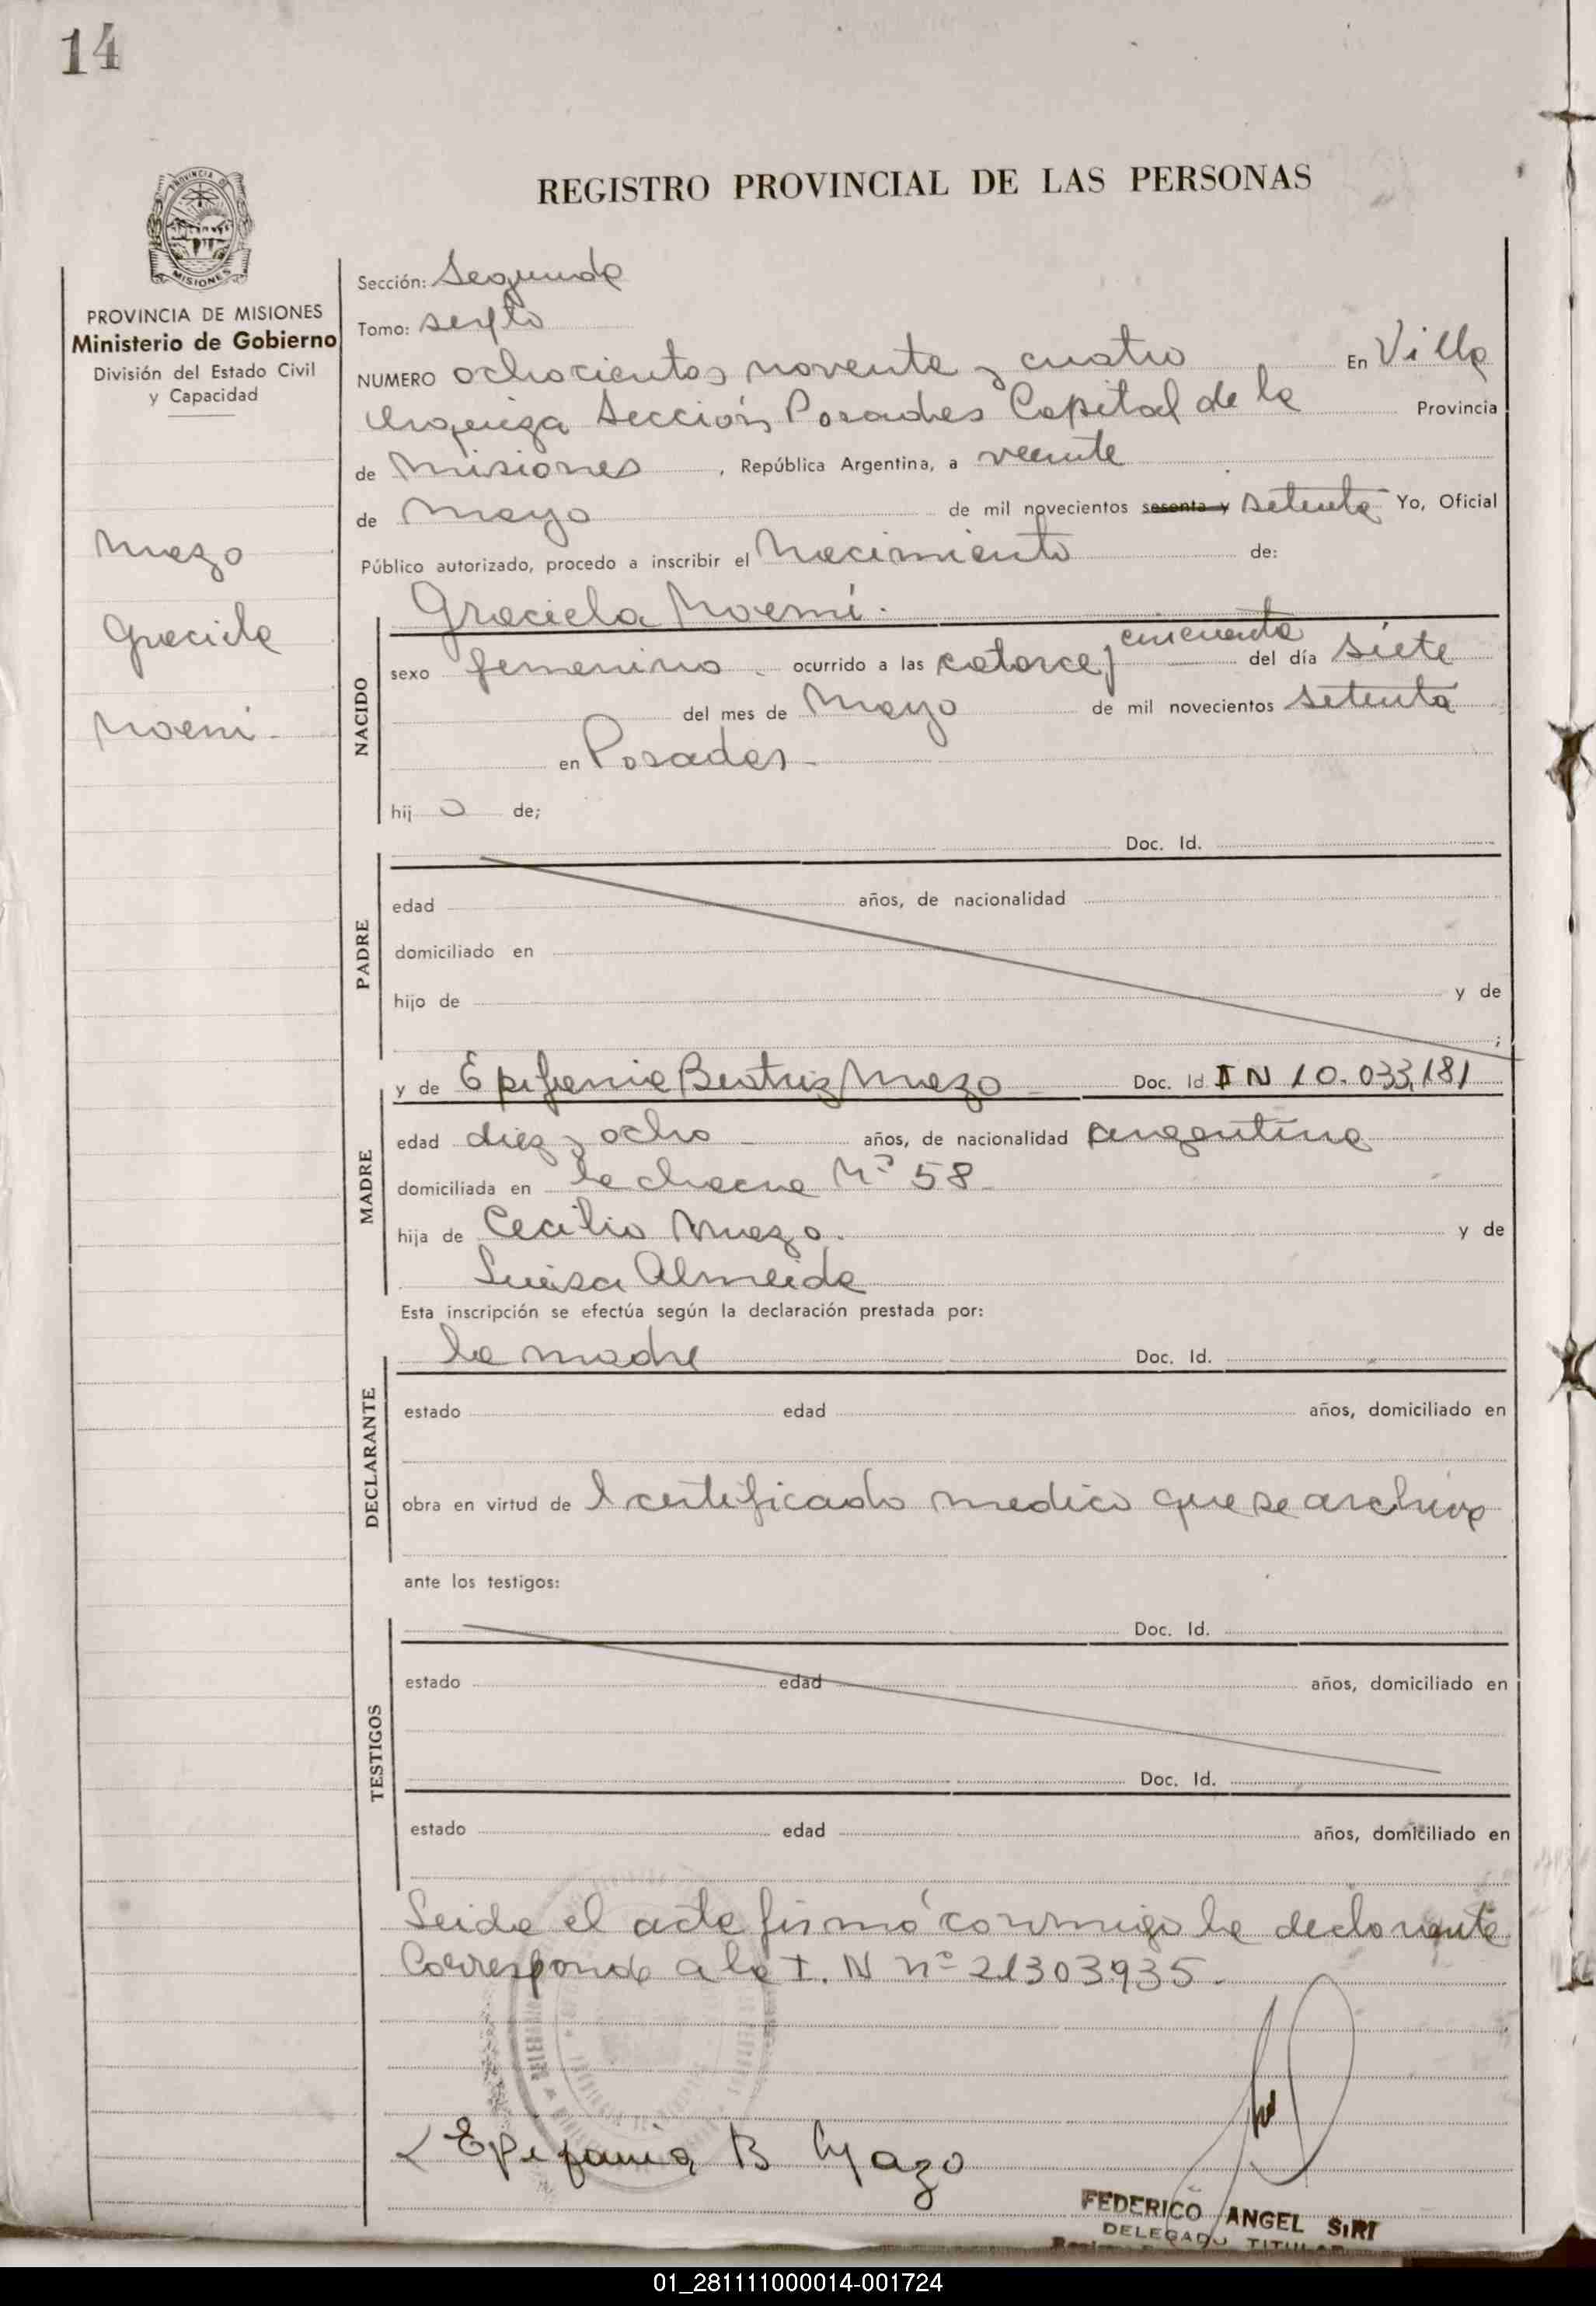 14
PROVINCIA DE
MISIONES
PROVINCIA DE MISIONES
Ministerio de Gobierno
División del Estado Civil
y Capacidad
Mazo
Graciela
Noemi -
REGISTRO PROVINCIAL DE LAS PERSONAS
Sección: Segunda
Tomo: sexto
NUMERO ochocientos noventa y cuatro En Villa
Urquiza Sección Posadas Capital de la Provincia
de Misiones , República Argentina, a veinte
de Mayo de mil novecientos sesenta y setenta Yo, Oficial
Público autorizado, procedo a inscribir el Nacimiento de:
Graciela Noemí.
NACIDO
sexo femenino ocurrido a las catorce y cincuenta del día siete
del mes de Mayo de mil novecientos setenta
en Posadas -
hij a de;
PADRE
Doc. Id.
edad años, de nacionalidad
domiciliado en
hijo de y de
;
MADRE
y de Epifania Beatriz Mazo - Doc. Id. I N 10.033,181
edad diez y ocho - años, de nacionalidad argentina
domiciliada en la chacra Nº 58 -
hija de Cecilio Mazo. y de
Luisa Almeida
Esta inscripción se efectúa según la declaración prestada por:
DECLARANTE
la madre Doc. Id.
estado edad años, domiciliado en
obra en virtud de l certificado medico que se archiva
ante los testigos:
TESTIGOS
Doc. Id.
estado edad años, domiciliado en
Doc. Id.
estado edad años, domiciliado en
Leida el acta firmó conmigo la declarante
Corresponde a la I. N nº 21303935.
Epifania B Mazo
FEDERICO ANGEL SIRI
DELEGADO TITULAR
01_281111000014-001724